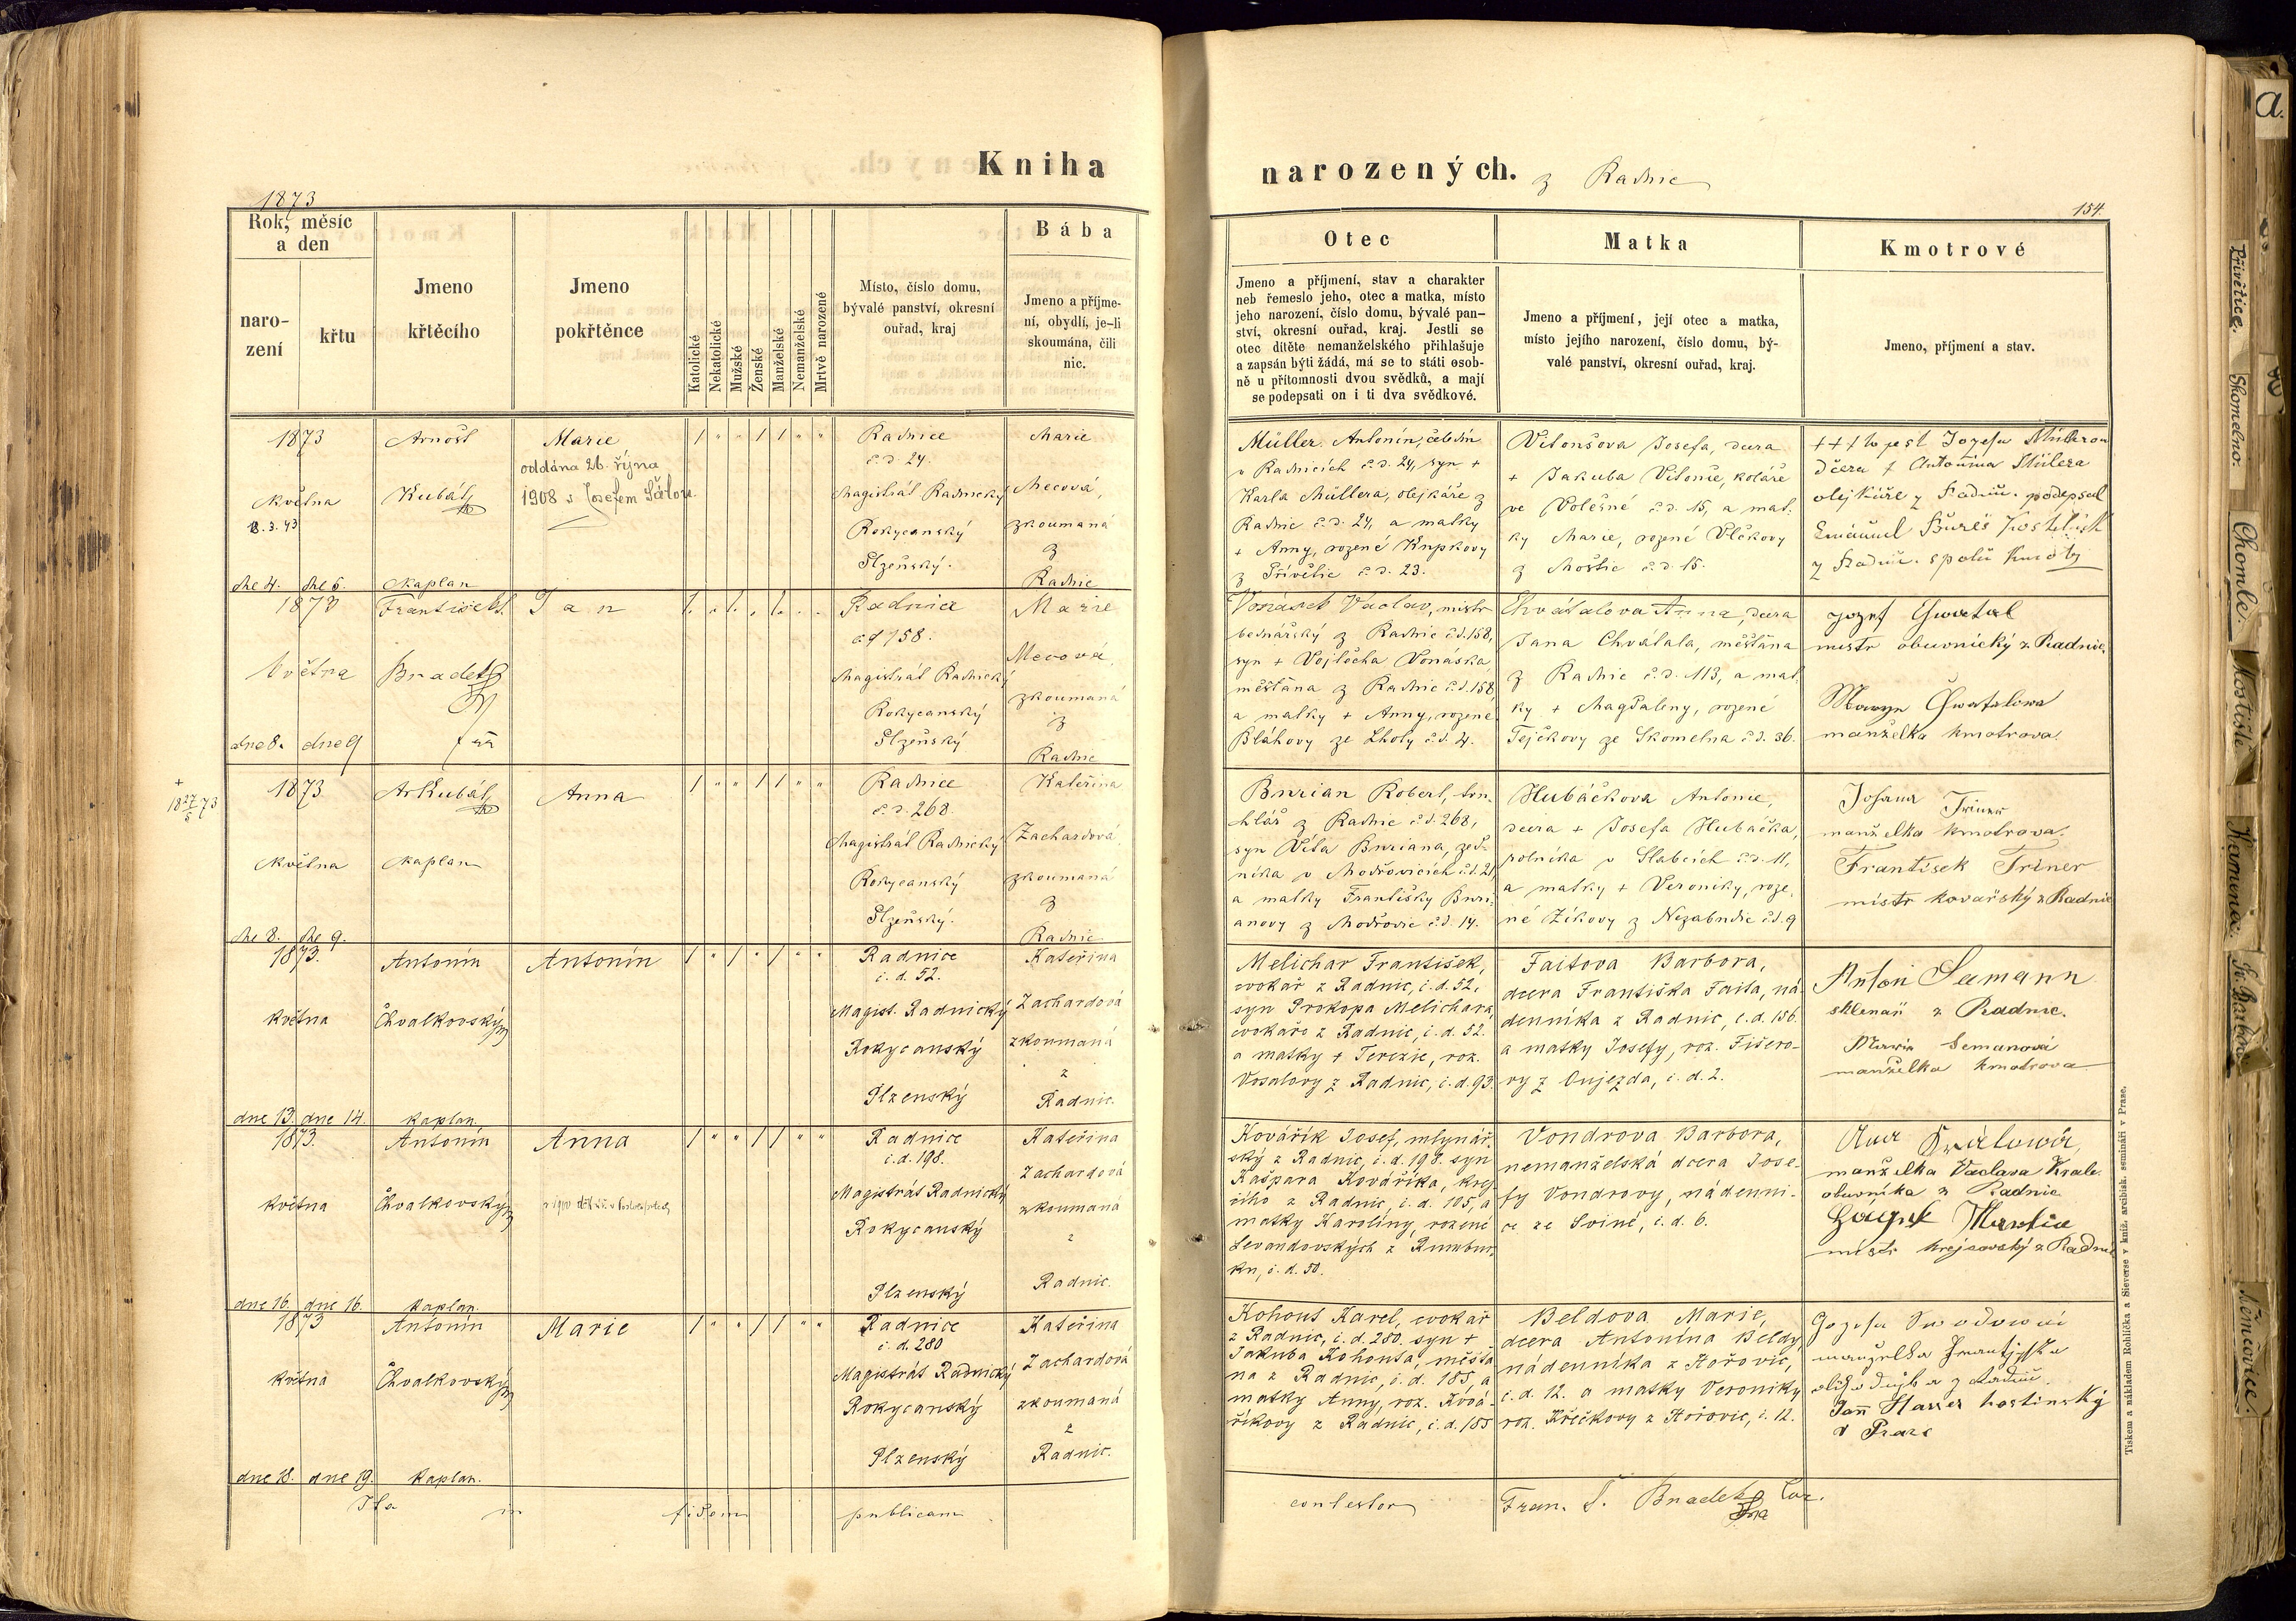 Kniha
narozených. z Radnic
1873
154.
Rok, měsíc
a den
naro-
zení
křtu
Jmeno
křtěcího
Jmeno
pokřtěnce
Katolické
Nekatolické
Mužské
Ženské
Manželské
Nemanželské
Mrtvě narozené
Místo, číslo domu,
bývalé panství, okresní
ouřad, kraj
Bába
Jmeno a příjme-
ní, obydlí, je-li
skoumána, čili
nic.
Otec
Jmeno a příjmení, stav a charakter
neb řemeslo jeho, otec a matka, místo
jeho narození, číslo domu, bývalé pan-
ství, okresní ouřad, kraj. Jestli se
otec dítěte nemanželského přihlašuje
a zapsán býti žádá, má se to státi osob-
ně u přítomnosti dvou svědků, a mají
se podepsati on i ti dva svědkové.
Matka
Jmeno a příjmení, její otec a matka,
místo jejího narození, číslo domu, bý-
valé panství, okresní ouřad, kraj.
Kmotrové
Jmeno, příjmení a stav.
1873
května
8.3.43
dne 4. dne 5.
Arnošt
Kubát
kaplan
Marie
oddána 26. října
1908 s Josefem
Radnice
č. d. 24.
Magistrát Radnický
Rokycanský
Plzeňský.
Marie
Mecová,
zkoumaná
z
Radnic
Müller Antonín, čeledín
v Radnicích č. d. 24, syn +
Karla Müllera, olejkáře z
Radnic č. d. 24, a matky
+ Anny, rozené Krupkovy
z Přívětic č. d. 23.
Vitoušova Josefa, dcera
+ Jakuba Vitouše, koláře
ve Volešné č. d. 15, a mat-
ky Marie, rozené Vlčkovy
z Moštic č. d. 15.
+++ to jest Jozefa
dcera + Antonína
olejkáře z Radnic. podepsal
Emanuel Bureš
z Radnic. spolu
1873
května
dne 8. dne 9
František
Bradetz
Jan
Radnice
čd 158.
Magistrát Radnický
Rokycanský
Plzeňský
Marie
Mecová,
zkoumaná
z
Radnic
Vonásek Václav, mistr
bednářský z Radnic č. d. 158,
syn + Vojtěcha Vonáska,
měšťana z Radnic č. d. 158,
a matky + Anny, rozené
Bláhovy ze Lhoty č. d. 4.
Chvátalova Anna, dcera
Jana Chvátala, měšťana
z Radnic č. d. 113, a mat-
ky + Magdaleny, rozené
Tejčkovy ze Skomelna č. d. 36.
Jozef Chwatal
mistr obuvnický z Radnic.
Marye Chwatalowa
manželka kmotrova.
+
18 27/5 73
1873
května
dne 8. dne 9.
Ar Kubát
kaplan
Anna
Radnice
č. d. 268.
Magistrát Radnický
Rokycanský
Plzeňský.
Kateřina
Zachardová
zkoumaná
z
Radnic
Burian Robert, tru-
hlář z Radnic č. d. 268,
syn Víta Buriana, zed-
níka v Modřovicích č. d. 21
a matky Františky Buri-
anovy z Modřovic č. d. 14.
Hubáčkova Antonie,
dcera + Josefa Hubáčka,
rolníka v Slabcích č. d. 11,
a matky + Veroniky, roze-
né Zíkovy z Nezabudic č. d. 9
Johana Triner
manželka kmotrova.
František Triner
mistr kovařský z Radnic
1873.
května
dne 13. dne 14.
Antonín
Chvalkovský
kaplan.
Antonín
Radnice
č. d. 52.
Magist. Radnický
Rokycanský
Plzenský
Kateřina
Zachardová
zkoumaná
z
Radnic.
Melichar František,
cvokař z Radnic, č. d. 52,
syn Prokopa Melichara,
cvokaře z Radnic, č. d. 52.
a matky + Terezie, roz.
Vosalovy z Radnic, č. d. 93.
Faitova Barbora,
dcera Františka Faita, ná-
denníka z Radnic, č. d. 156.
a matky Josefy, roz. Fišero-
vy z Oujezda, č. d. 2.
Anton Semann
sklenář z Radnic.
Marie Semanová
manželka kmotrova
1873.
května
dne 16. dne 16.
Antonín
Chvalkovský
kaplan.
Anna
Radnice
č. d. 198.
Magistrát Radnický
Rokycanský
Plzenský
Kateřina
Zachardová
zkoumaná
z
Radnic.
Kovářík Josef, mlynář-
ský z Radnic, č. d. 198. syn
Kašpara Kováříka, krej-
čího z Radnic, č. d. 105, a
matky Karolíny, rozené
Levandovských z Rumbur-
ku, č. d. 50.
Vondrova Barbora,
nemanželská dcera Jose-
fy Vondrovy, nádenni-
ce ze Sviné, č. d. 6.
Ana Králowá,
manželka Václava Krale
obuvníka z Radnic
Martin
mistr krejčovský z Radnic
1873
května
dne 18. dne 19.
Antonín
Chvalkovský
kaplan.
Marie
Radnice
č. d. 280
Magistrát Radnický
Rokycanský
Plzenský
Kateřina
Zachardová
zkoumaná
z
Radnic.
Kohout Karel, cvokař
z Radnic, č. d. 280. syn +
Jakuba Kohouta, měšťa-
na z Radnic, č. d. 185, a
matky Anny, roz. Ková-
říkovy z Radnic, č. d. 185
Beldova Marie,
dcera Antonína Beldy,
nádenníka z Hořovic,
č. d. 12. a matky Veroniky
roz. Křečkovy z Hořovic, č. 12.
Jozefa
manželka
Jan hostinský
v Praze
Ita in fidem publicam
contestor Fran. S. Bradetz
Tiskem a nákladem Rohlíčka a Sieverse v kníž. arcibisk. semináři v Praze.
a.
Přívětice.
Skomelno.
Chomle.
Mostiště
Kamenec.
Sv. Barbora
Němčovice.